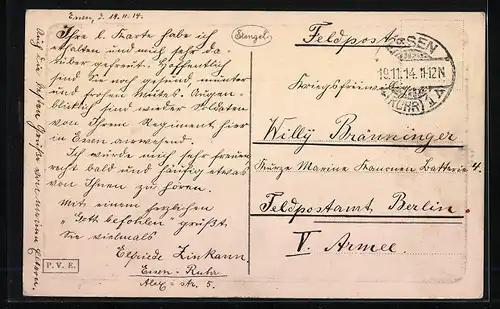 Essen, d. 18.11.14.
Ihre l. Karte habe ich
erhalten und mich sehr da-
rüber gefreut. Hoffentlich
sind Sie noch gesund munter
und frohen Mutes. Augen-
blicklich sind wieder Soldaten
von Ihrem Regiment hier
in Essen anwesend.
Ich würde mich sehr freuen
recht bald und häufig etwas
von Ihnen zu hören.
Mit einem herzlichen
„Gott befohlen" grüßt
Sie vielmals
Elfriede Zinkann
Essen-Ruhr
Alex-str. 5.
Auch die besten Grüße von meinen Eltern.
P. V. E.
Stengel
Feldpost
ESSEN
19.11.14.11-12N
(RUHR)
Kriegsfreiw.
Willy Bränninger
Kurze Marine Kanonen Batterie 4.
Feldpostamt Berlin
V. Armee.